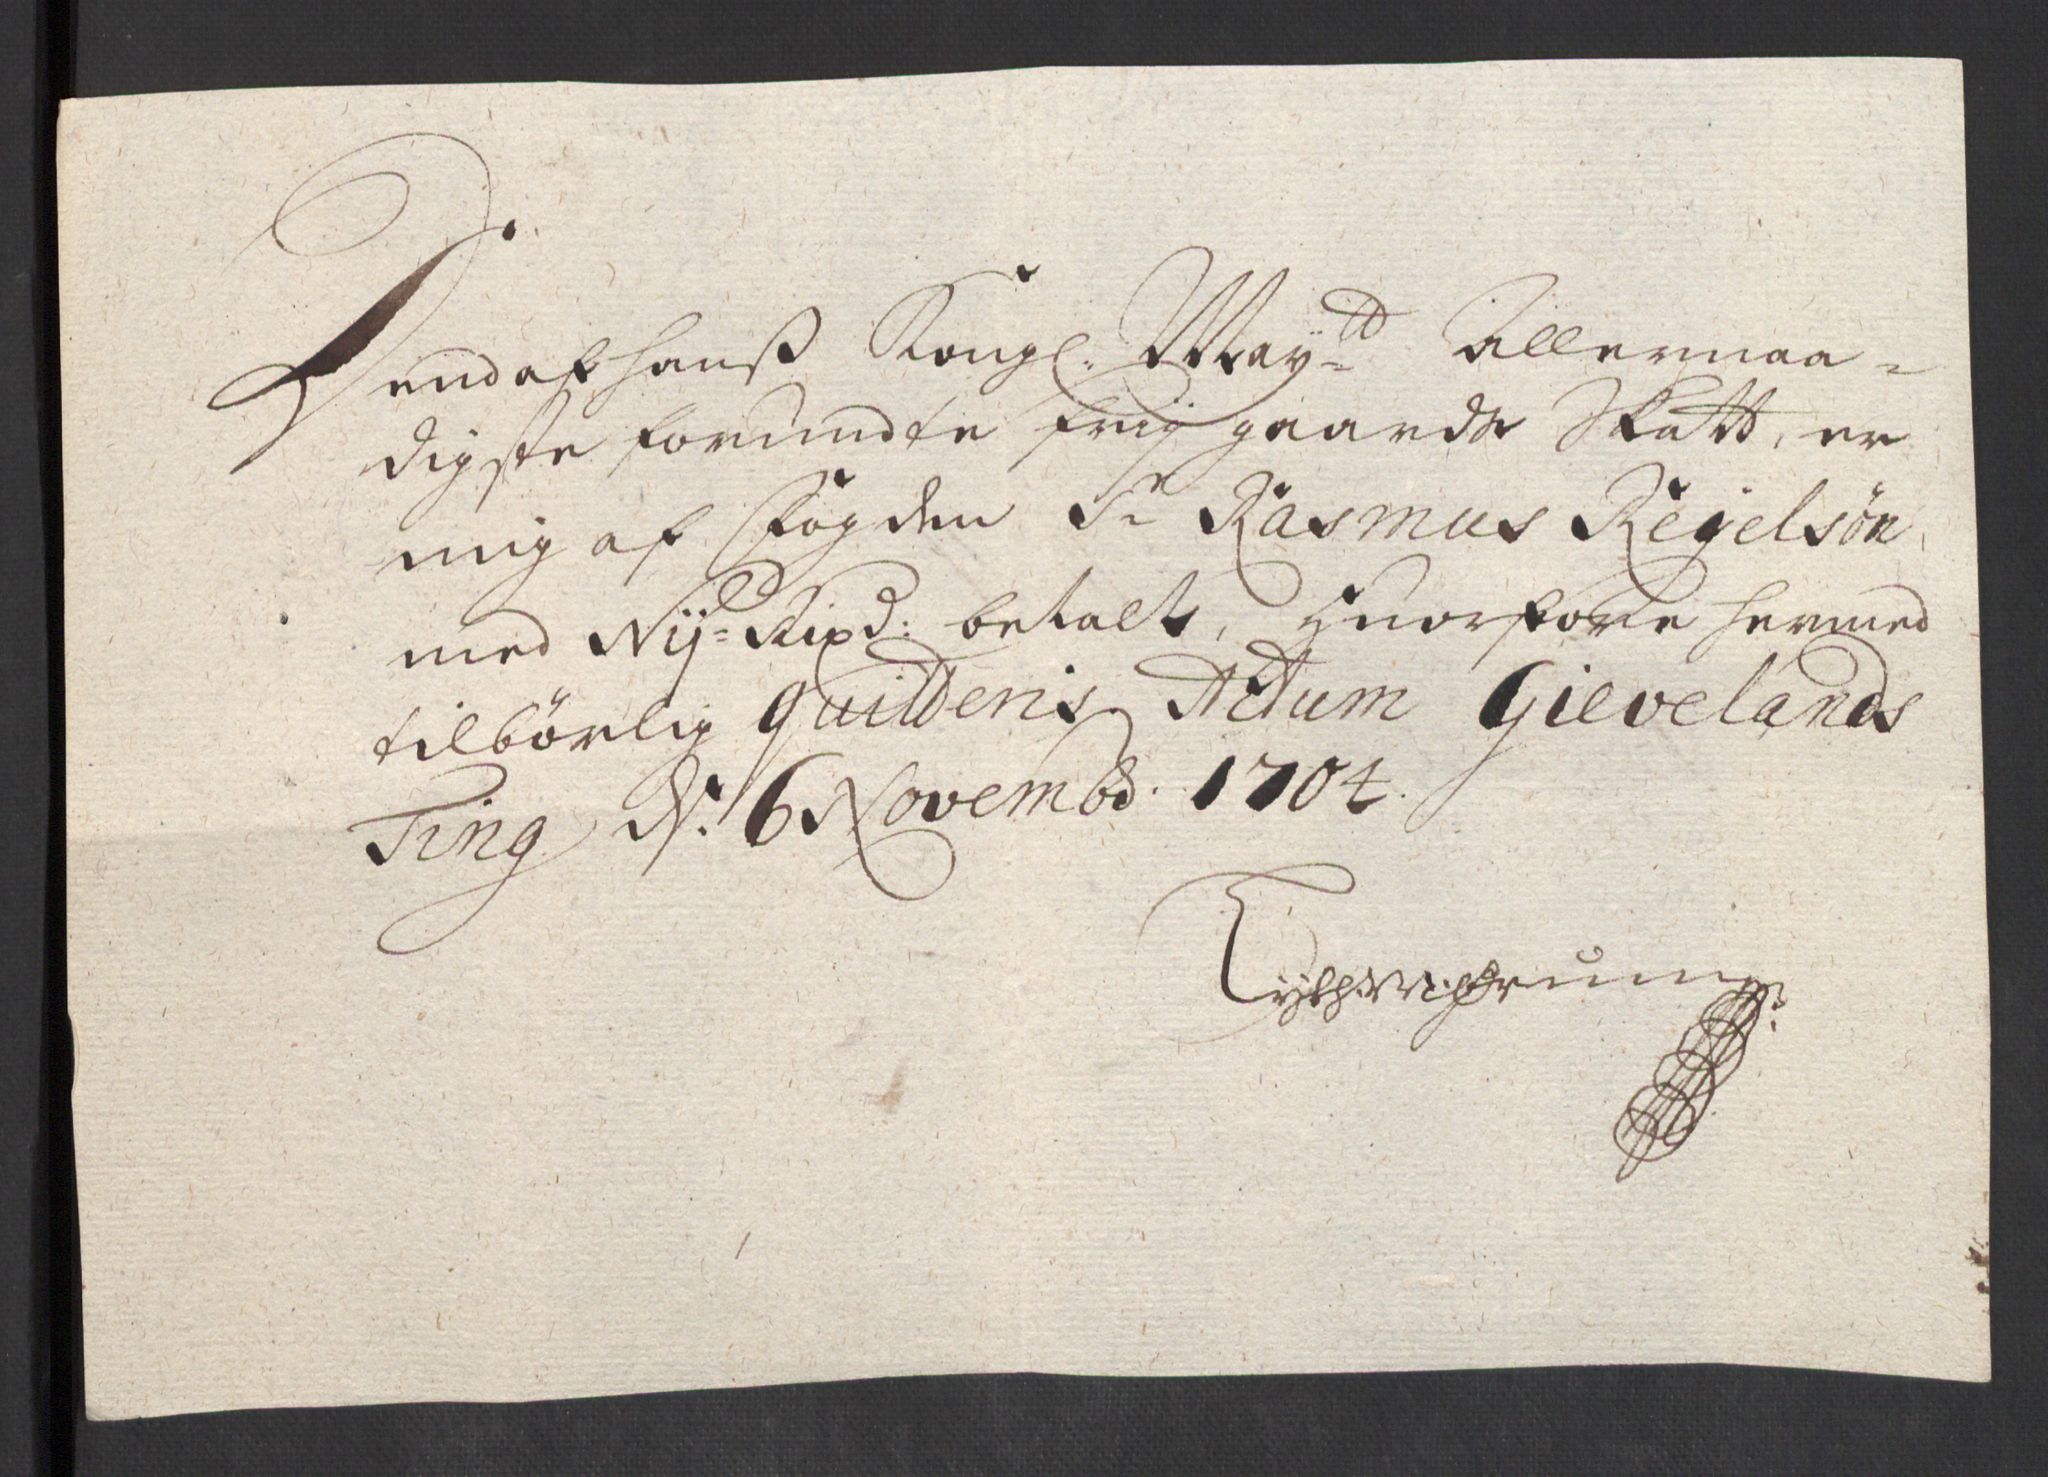 Dend af hanß Kongl: May:tt Allernaa=
digste forundte frij gaards Skatt, er
mig af Fogden Sr Rasmus Kegelsøn
med Nij= Rixd: betalt, Huorfore hermed
tilbørlig Quitteris. Actum Gievelands
Ting d: 6 Novembr: 1704.